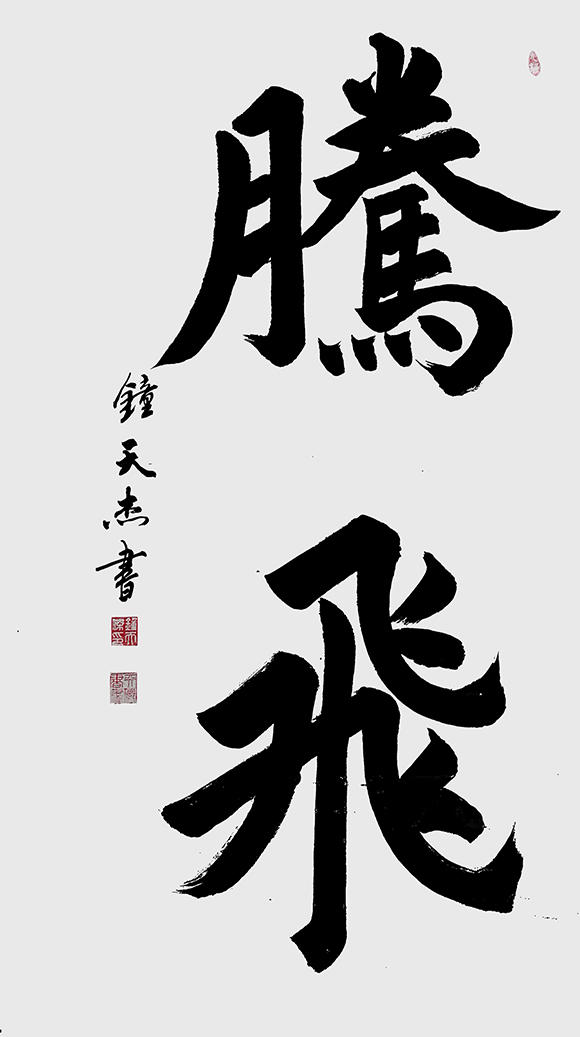 騰飛
鐘天杰書